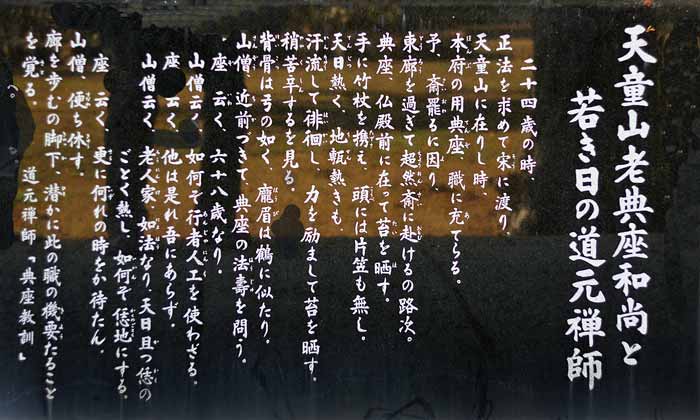 天童山老典座和尚と
若き日の道元禅師
二十四歳の時、
正法を求めて宋に渡り、
天童山に在りし時、
本府の用典座、職に充てらる。
予、斎罷るに因り、
東廊を過ぎて超然斎に赴けるの路次。
典座、仏殿前に在って苔を晒す。
手に竹杖を携え、頭には片笠も無し。
天日熱く、地甎熱きも、
汗流して徘徊し、力を励まして苔を晒す。
稍苦辛するを見る。
背骨は弓の如く、龐眉は鶴に似たり。
山僧、近前づきて、典座の法壽を問う。
座云く、六十八歳なり。
山僧云く、如何ぞ行者人工を使わざる。
座云く、他は是れ吾にあらず。
山僧云く、老人家、如法なり、天日且つ恁の
ごとく熱し、如何ぞ恁地にする。
座云く、更に何れの時をか待たん。
山僧、便ち休す。
廊を歩むの脚下、潜かに此の職の機要たること
を覚る。 道元禅師「典座教訓」